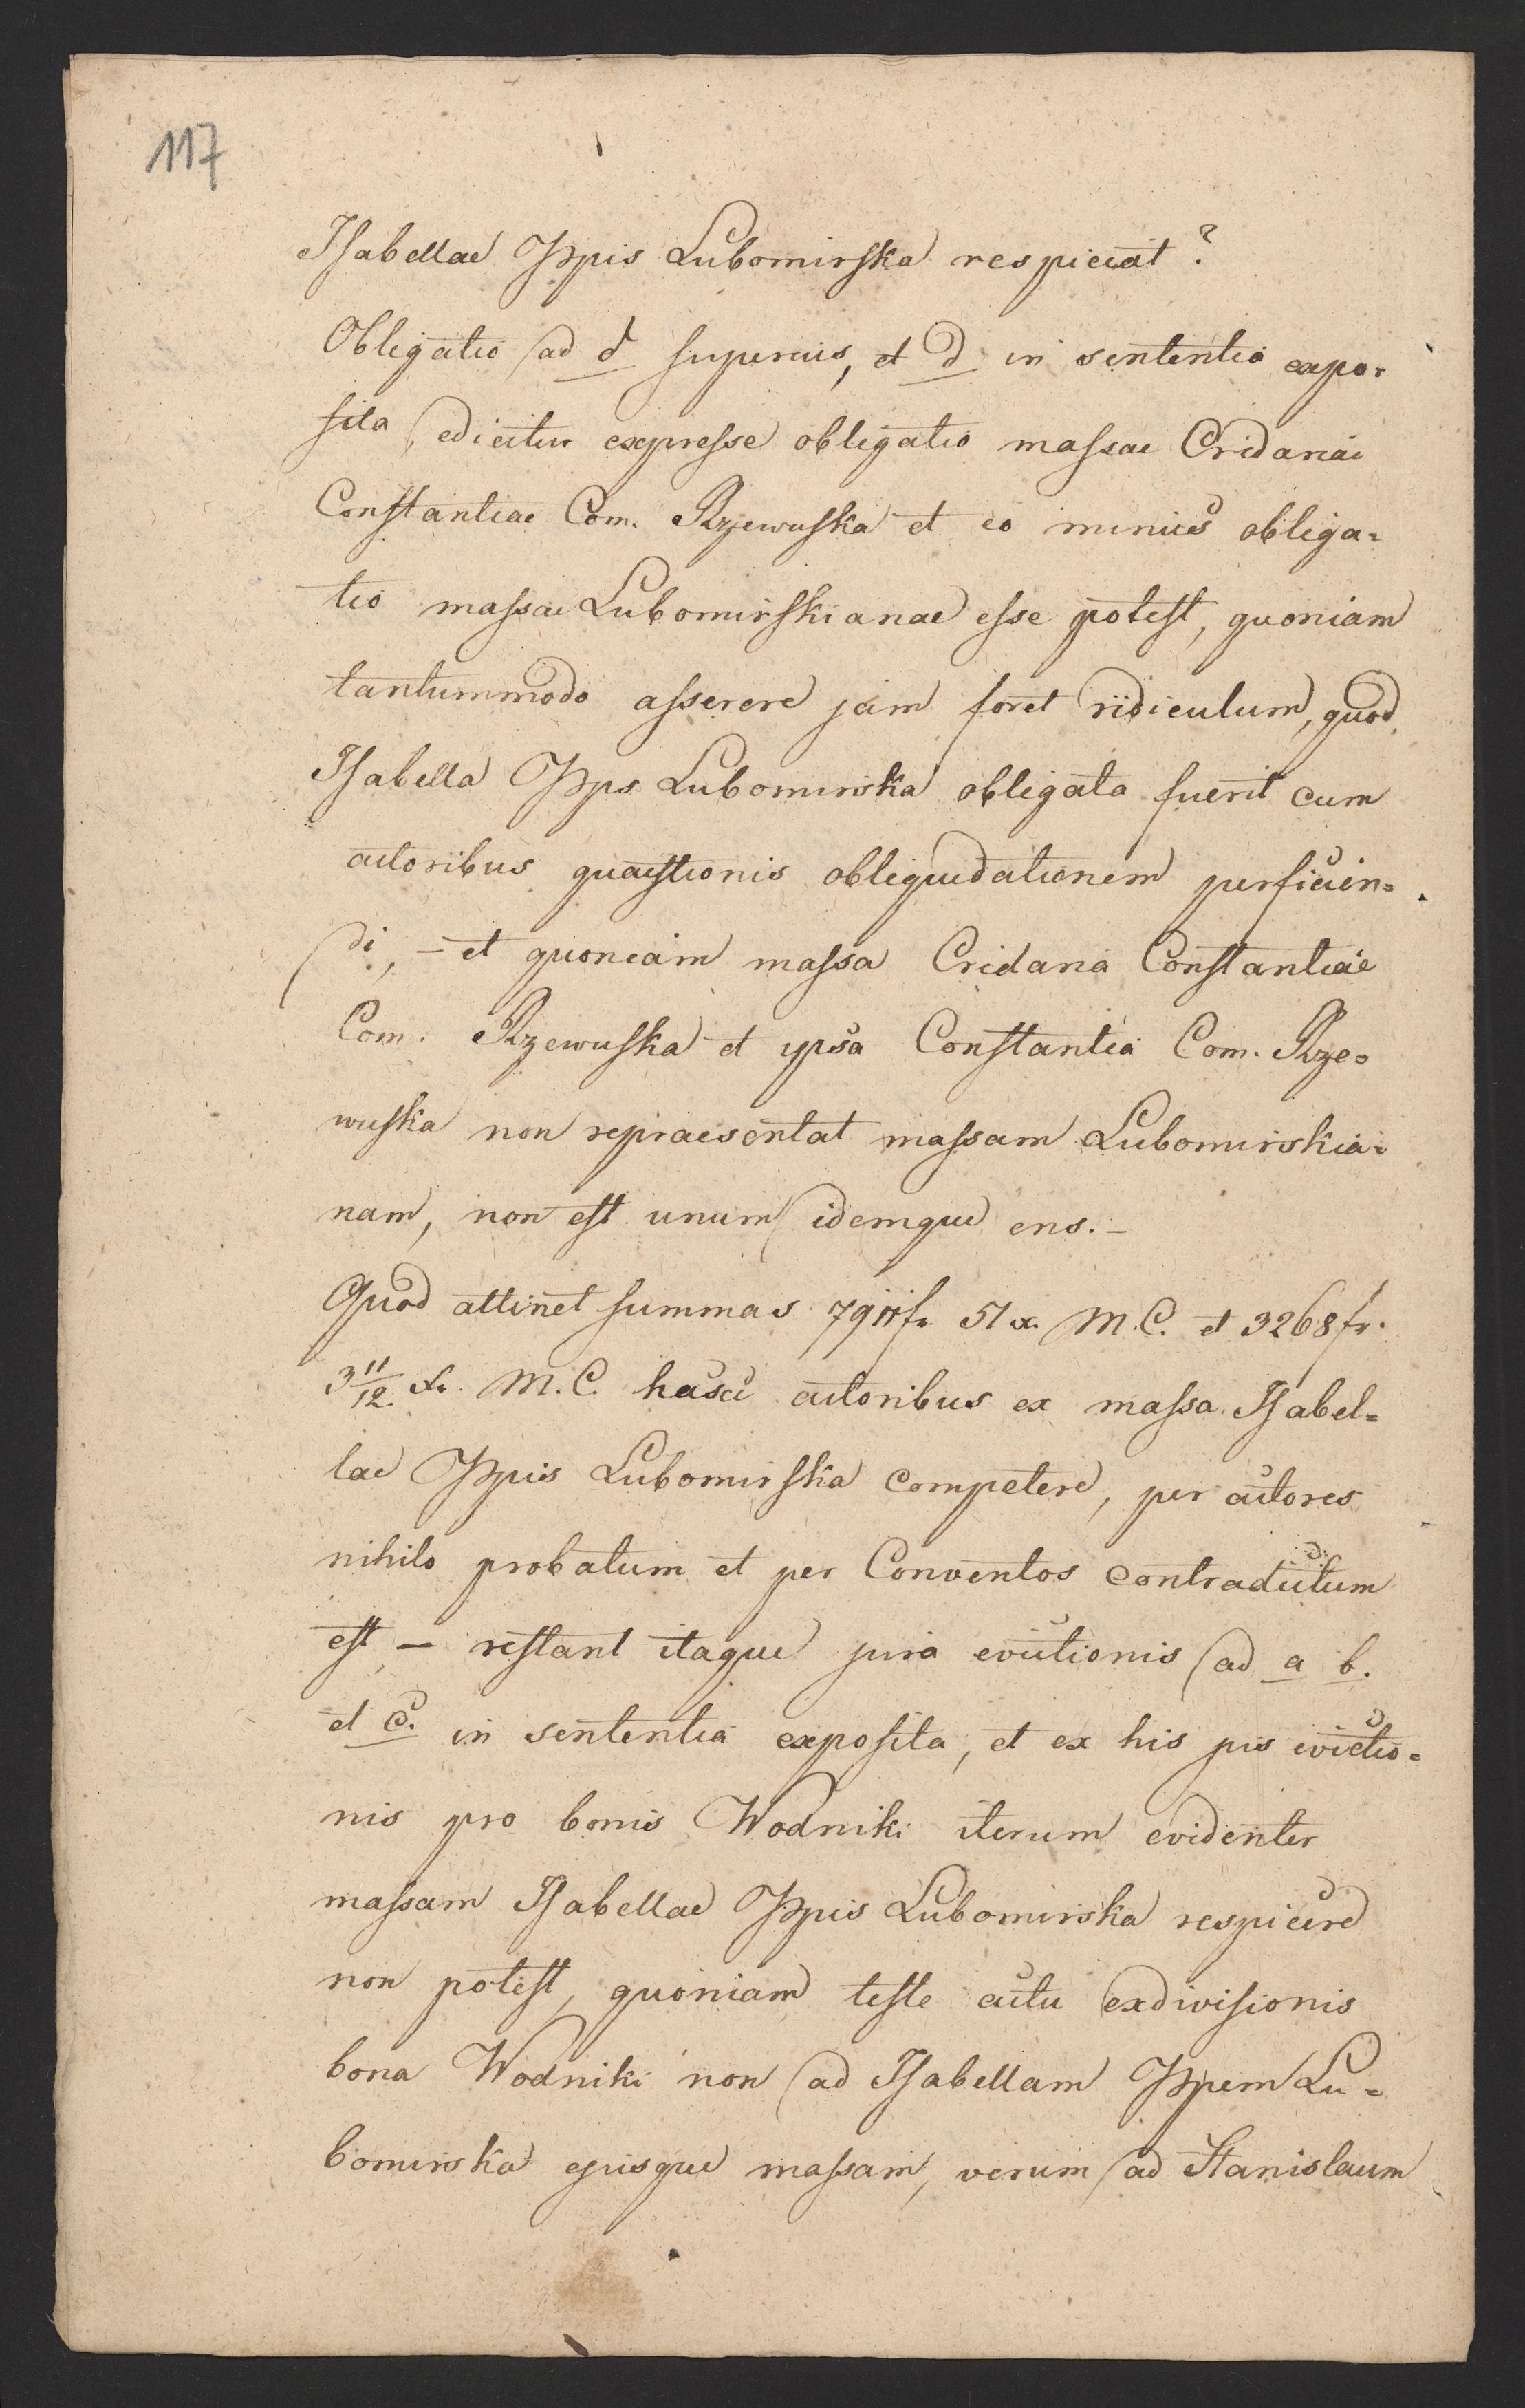 117
Isabellae Ppis Lubomirska respiciat?
Obligatio ad d superius, et d in sententia expo-
sita, edicitur expresse obligatio massae Cridariae
Constantiae Com. Rzewuska et eo minus obliga-
tio massae Lubomirskianae esse potest, quoniam
tantummodo asserere jam foret ridiculum, quod
Isabella Pps Lubomirska obligata fuerit cum
actoribus quaestionis obliquidationem perficien-
di, – et quoniam massa Cridaria Constantiae
Com. Rzewuska et ipsa Constantia Com. Rze-
wuska non repraesentat massam Lubomirskia-
nam, non est unum idemque ens. –
Quod attinet summas 7911 fr. 51 x. M.C. et 3268 fr.
3 11/12. xr. M.C. hasce actoribus ex massa Isabel-
lae Ppis Lubomirska competere, per actores
nihilo probatum et per Conventos contradictum
est, – restant itaque jura evictionis ad a b.
et c. in sententia exposita, et ex his jus evictio-
nis pro bonis Wodniki iterum evidenter
massam Isabellae Ppis Lubomirska respicere
non potest, quoniam teste actu exdivisionis
bona Wodniki non ad Isabellam Ppem Lu-
bomirska ejusque massam, verum ad Stanislaum